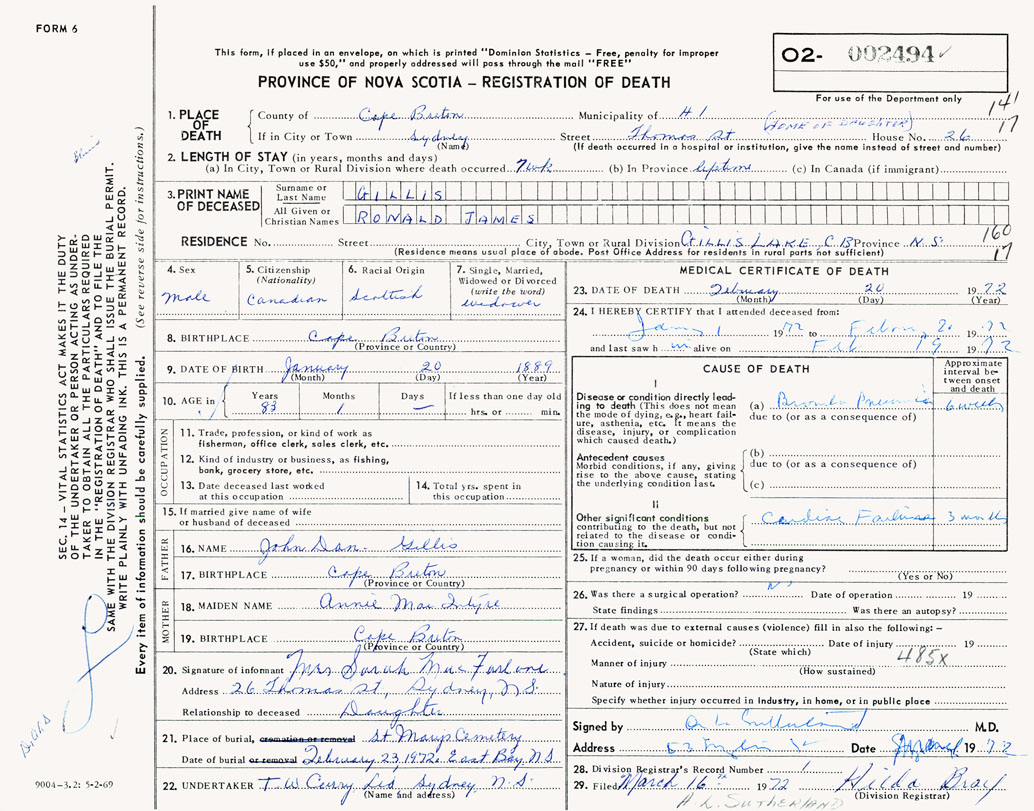 FORM 6
This form, if placed in an envelope, on which is printed "Dominion Statistics – Free, penalty for improper
use $50," and properly addressed will pass through the mail "FREE"
PROVINCE OF NOVA SCOTIA – REGISTRATION OF DEATH
O2- 002494
For use of the Department only
141
17
1. PLACE OF DEATH
County of Cape Breton Municipality of # 1
(HOME OF DAUGHTER)
If in City or Town Sydney Street Thomas St House No. 26
(Name) (If death occurred in a hospital or institution, give the name instead of street and number)
2. LENGTH OF STAY (in years, months and days)
(a) In City, Town or Rural Division where death occurred 7 wk (b) In Province lifetime (c) In Canada (if immigrant)
3. PRINT NAME OF DECEASED
Surname or Last Name GILLIS
All Given or Christian Names RONALD JAMES
160
17
RESIDENCE No. Street City, Town or Rural Division GILLIS LAKE C.B Province N.S.
(Residence means usual place of abode. Post Office Address for residents in rural parts not sufficient)
4. Sex
Male
5. Citizenship
(Nationality)
Canadian
6. Racial Origin
Scottish
7. Single, Married,
Widowed or Divorced
(write the word)
widower
8. BIRTHPLACE Cape Breton
(Province or Country)
9. DATE OF BIRTH January 20 1889
(Month) (Day) (Year)
10. AGE in
Years Months Days If less than one day old
83 1 — hrs. or min.
OCCUPATION
11. Trade, profession, or kind of work as
fisherman, office clerk, sales clerk, etc.
12. Kind of industry or business, as fishing,
bank, grocery store, etc.
13. Date deceased last worked
at this occupation
14. Total yrs. spent in
this occupation
15. If married give name of wife
or husband of deceased
FATHER
16. NAME John Dan. Gillis
17. BIRTHPLACE Cape Breton
(Province or Country)
MOTHER
18. MAIDEN NAME Annie MacIntyre
19. BIRTHPLACE Cape Breton
(Province or Country)
20. Signature of informant Mrs Sarah MacFarlane
Address 26 Thomas St, Sydney, N.S.
Relationship to deceased Daughter
21. Place of burial, cremation or removal St Marys Cemetery
Date of burial or removal February 23, 1972. East Bay N.S.
22. UNDERTAKER T. W. Curry Ltd Sydney N.S.
(Name and address)
MEDICAL CERTIFICATE OF DEATH
23. DATE OF DEATH February 20 1972
(Month) (Day) (Year)
24. I HEREBY CERTIFY that I attended deceased from:
Jany 1 1972 to 1972
and last saw h im alive on Feb 19 1972
CAUSE OF DEATH
Approximate
interval be-
tween onset
and death
I
Disease or condition directly lead-
ing to death (This does not mean
the mode of dying, e.g., heart fail-
ure, asthenia, etc. It means the
disease, injury, or complication
which caused death.)
(a) Broncho Pneumonia 6 weeks
due to (or as a consequence of)
Antecedent causes
Morbid conditions, if any, giving
rise to the above cause, stating
the underlying condition last.
(b)
due to (or as a consequence of)
(c)
II
Other significant conditions
contributing to the death, but not
related to the disease or condi-
tion causing it.
Cardiac Failure 3 months
25. If a woman, did the death occur either during
pregnancy or within 90 days following pregnancy?
(Yes or No)
26. Was there a surgical operation? No Date of operation 19
State findings Was there an autopsy?
27. If death was due to external causes (violence) fill in also the following: –
Accident, suicide or homicide? Date of injury 19
(State which)
485X
Manner of injury
(How sustained)
Nature of injury
Specify whether injury occurred in industry, in home, or in public place
Signed by M.D.
Address Date 1972
28. Division Registrar's Record Number 1
29. Filed March 16th 1972 Hilda Bray
(Division Registrar)
A. L. SUTHERLAND
SEC. 14 – VITAL STATISTICS ACT MAKES IT THE DUTY
OF THE UNDERTAKER OR PERSON ACTING AS UNDER-
TAKER TO OBTAIN ALL THE PARTICULARS REQUIRED
IN THE "REGISTRATION OF DEATH" AND TO FILE THE
SAME WITH THE DIVISION REGISTRAR WHO SHALL ISSUE THE BURIAL PERMIT.
WRITE PLAINLY WITH UNFADING INK. THIS IS A PERMANENT RECORD.
Every item of information should be carefully supplied. (See reverse side for instructions.)
9004-3.2: 5-2-69